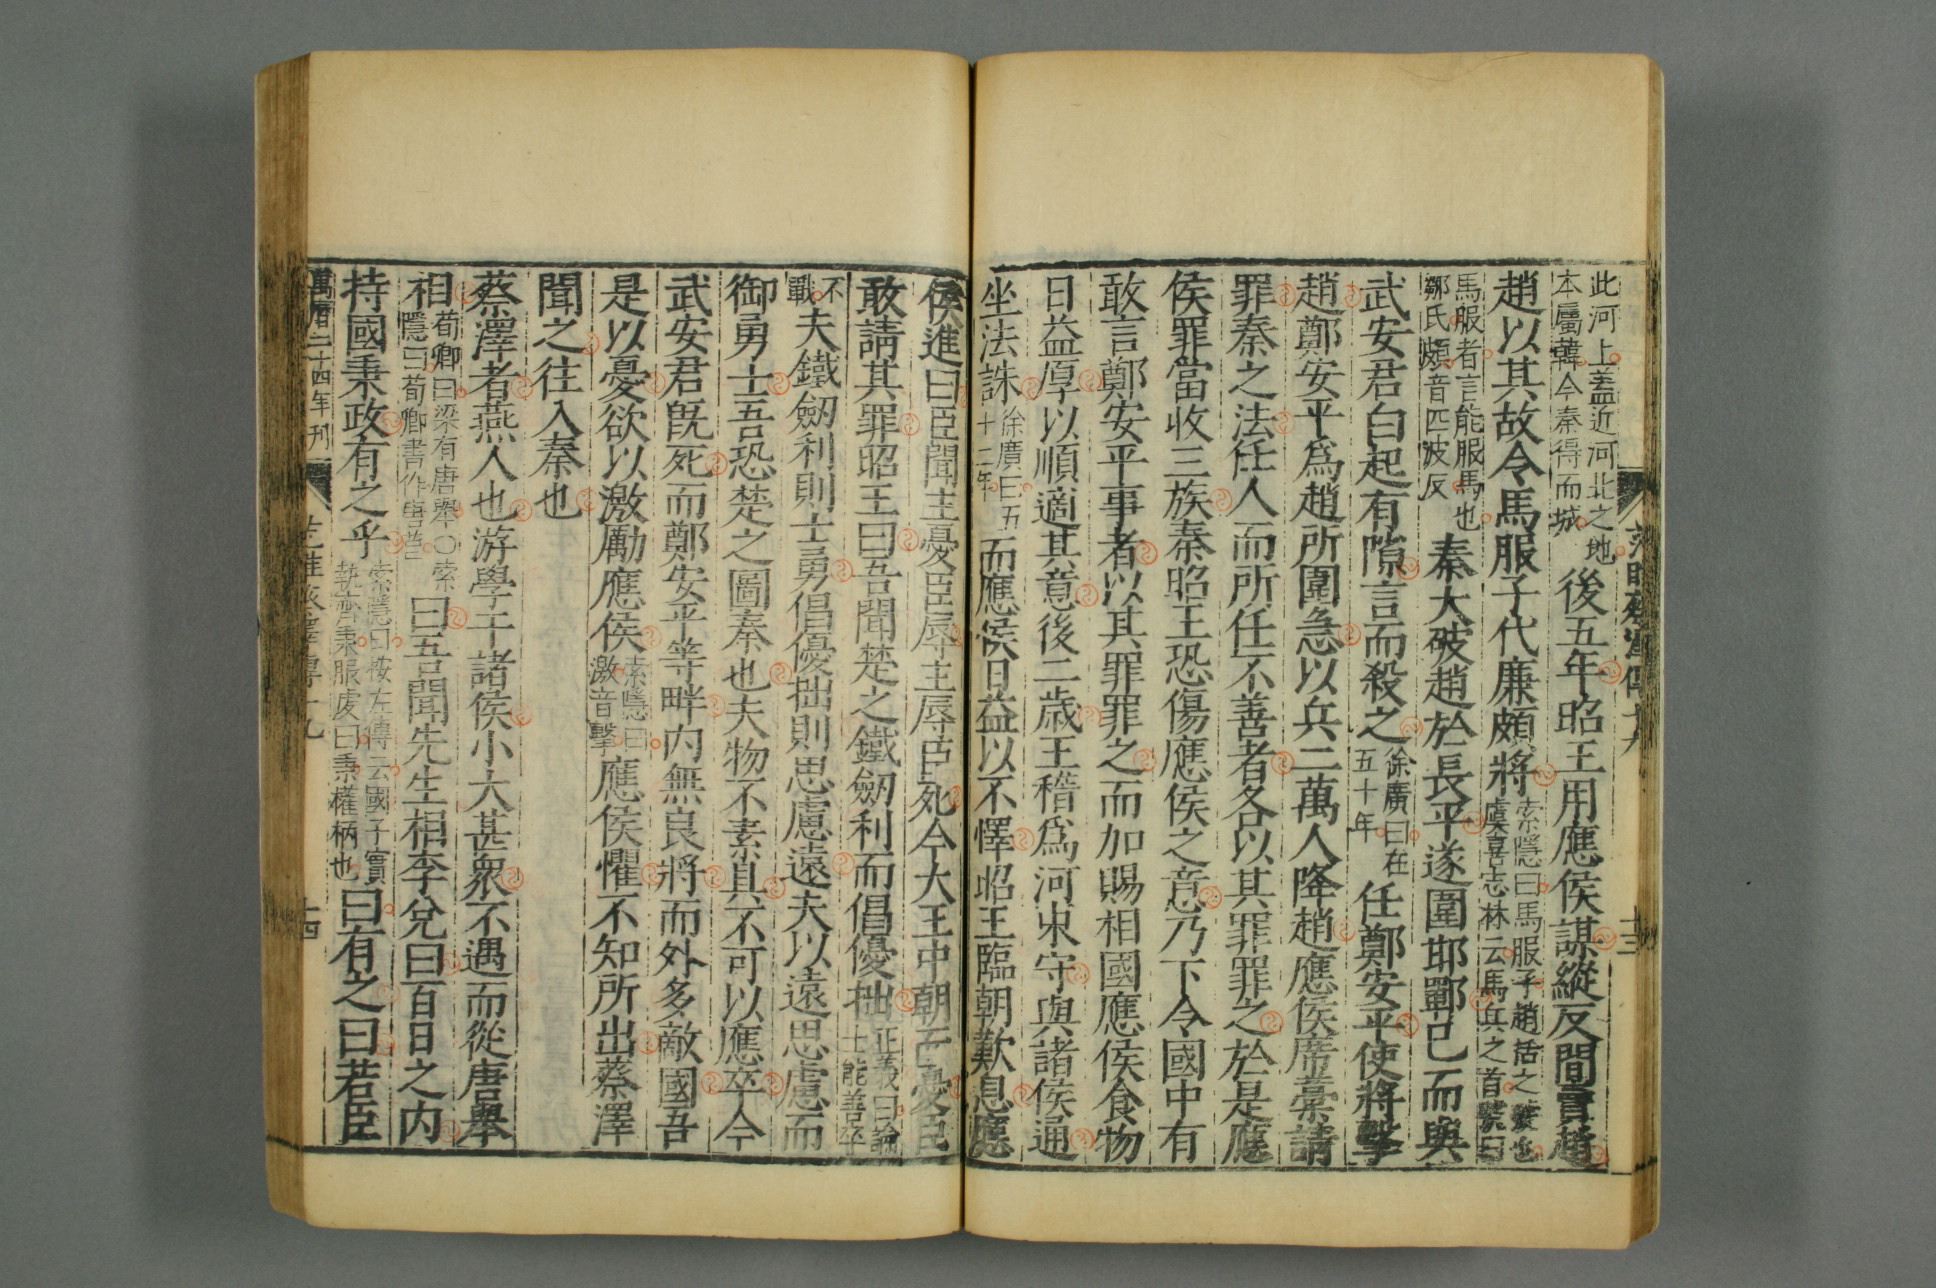 此河上蓋近河北之地本屬韓今秦得而城後五年昭王用應侯謀縱反間賣趙
趙以其故令馬服子代廉頗將索隱曰馬服子趙括之號也虞喜志林云馬兵之首號曰
馬服者言能服馬也鄒氏頗音匹波反秦大破趙於長平遂圍邯鄲已而與
武安君白起有隙言而殺之徐廣曰在五十年任鄭安平使將擊
趙鄭安平爲趙所圍急以兵二萬人降趙應侯席藁請
罪秦之法任人而所任不善者各以其罪罪之於是應
侯罪當收三族秦昭王恐傷應侯之意乃下令國中有
敢言鄭安平事者以其罪罪之而加賜相國應侯食物
日益厚以順適其意後二歲王稽爲河東守與諸侯通
坐法誅徐廣曰五十二年而應侯日益以不懌昭王臨朝歎息應
侯進曰臣聞主憂臣辱主辱臣死今大王中朝而憂臣
敢請其罪昭王曰吾聞楚之鐵劒利而倡優拙正義曰論士能善卒
不戰夫鐵劒利則士勇倡優拙則思慮遠夫以遠思慮而
御勇士吾恐楚之圖秦也夫物不素具不可以應卒今
武安君旣死而鄭安平等畔內無良將而外多敵國吾
是以憂欲以激勵應侯索隱曰激音擊應侯懼不知所出蔡澤
聞之往入秦也
蔡澤者燕人也游學干諸侯小大甚衆不遇而從唐舉
相荀卿曰梁有唐舉○索隱曰荀卿書作唐莒曰吾聞先生相李兌曰百日之內
持國秉政有之乎索隱曰按左傳云國子實執齊秉服虔曰秉權柄也曰有之曰若臣
萬曆二十四年刊